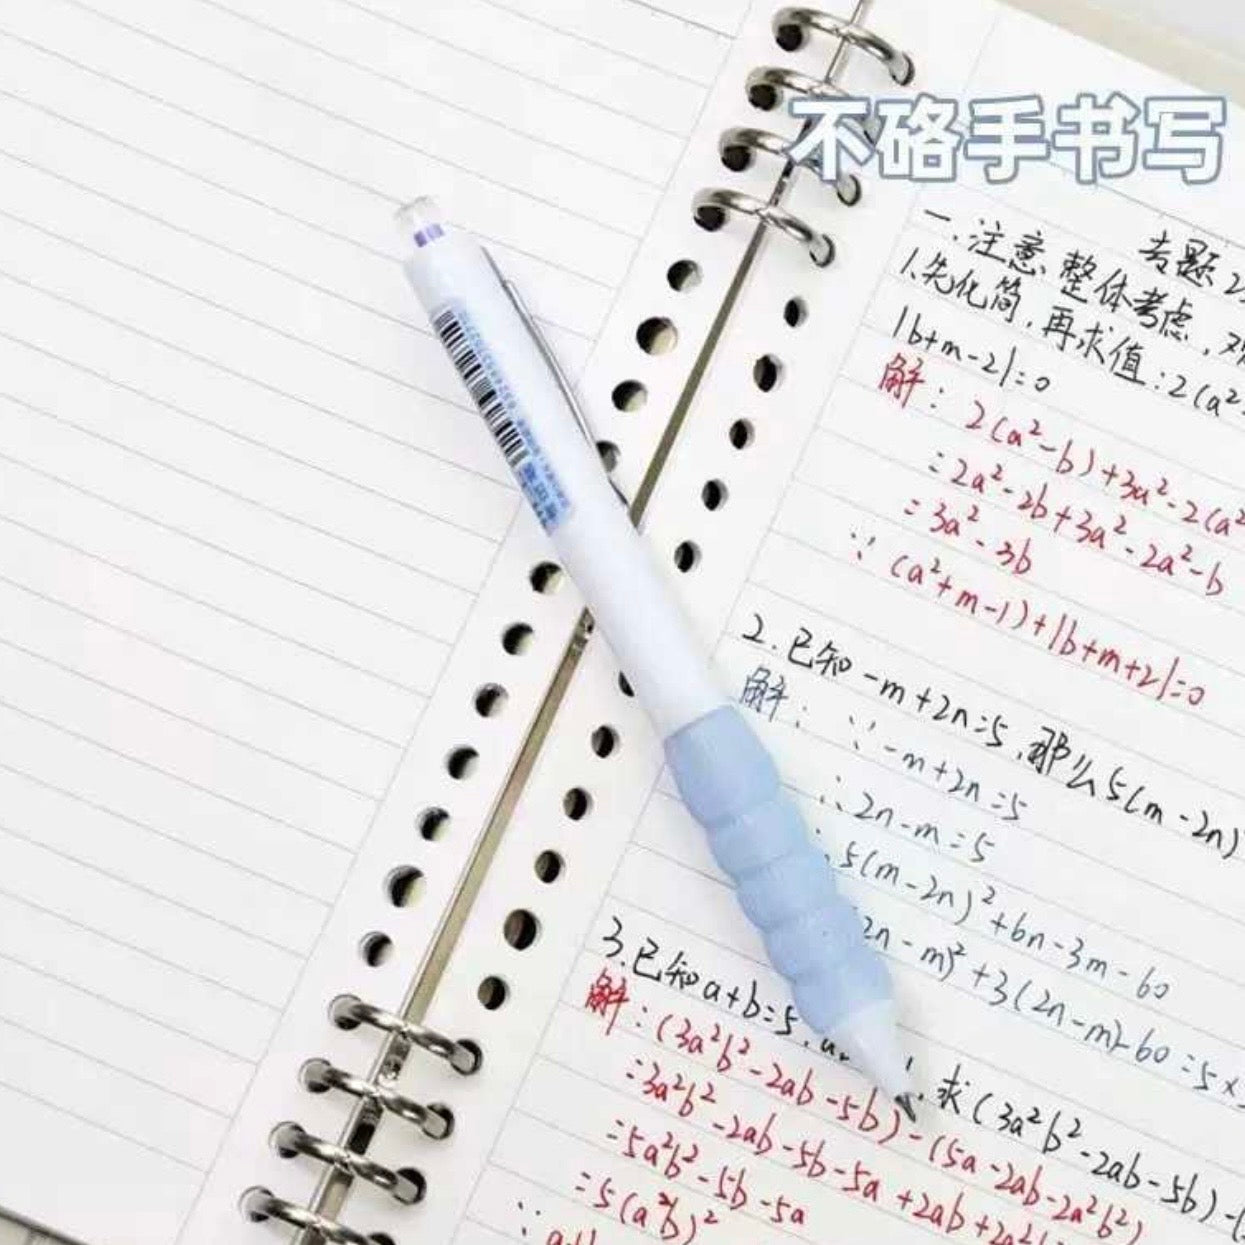 不硌手书写
专题2
一.注意整体考虑,
1.先化简,再求值:2(a²-
|b+m-2|=0
解: 2(a²-b)+3a²-2(a²
=2a²-2b+3a²-2a²-b
=3a²-3b
∵ (a²+m-1)+|b+m+2|=0
2.已知-m+2n=5,那么5(m-2n)
解: ∵-m+2n=5
∴2n-m=5
5(m-2n)²+6n-3m-60
(2n-m)²+3(2n-m)-60=5×
3.已知a+b=5, 求(3a²b²-2ab-5b)-(
解:(3a²b²-2ab-5b)-(5a-2ab-2a²b²)
=3a²b²-2ab-5b-5a+2ab+2a²
=5a²b²-5b-5a
=5(ab)²
∵